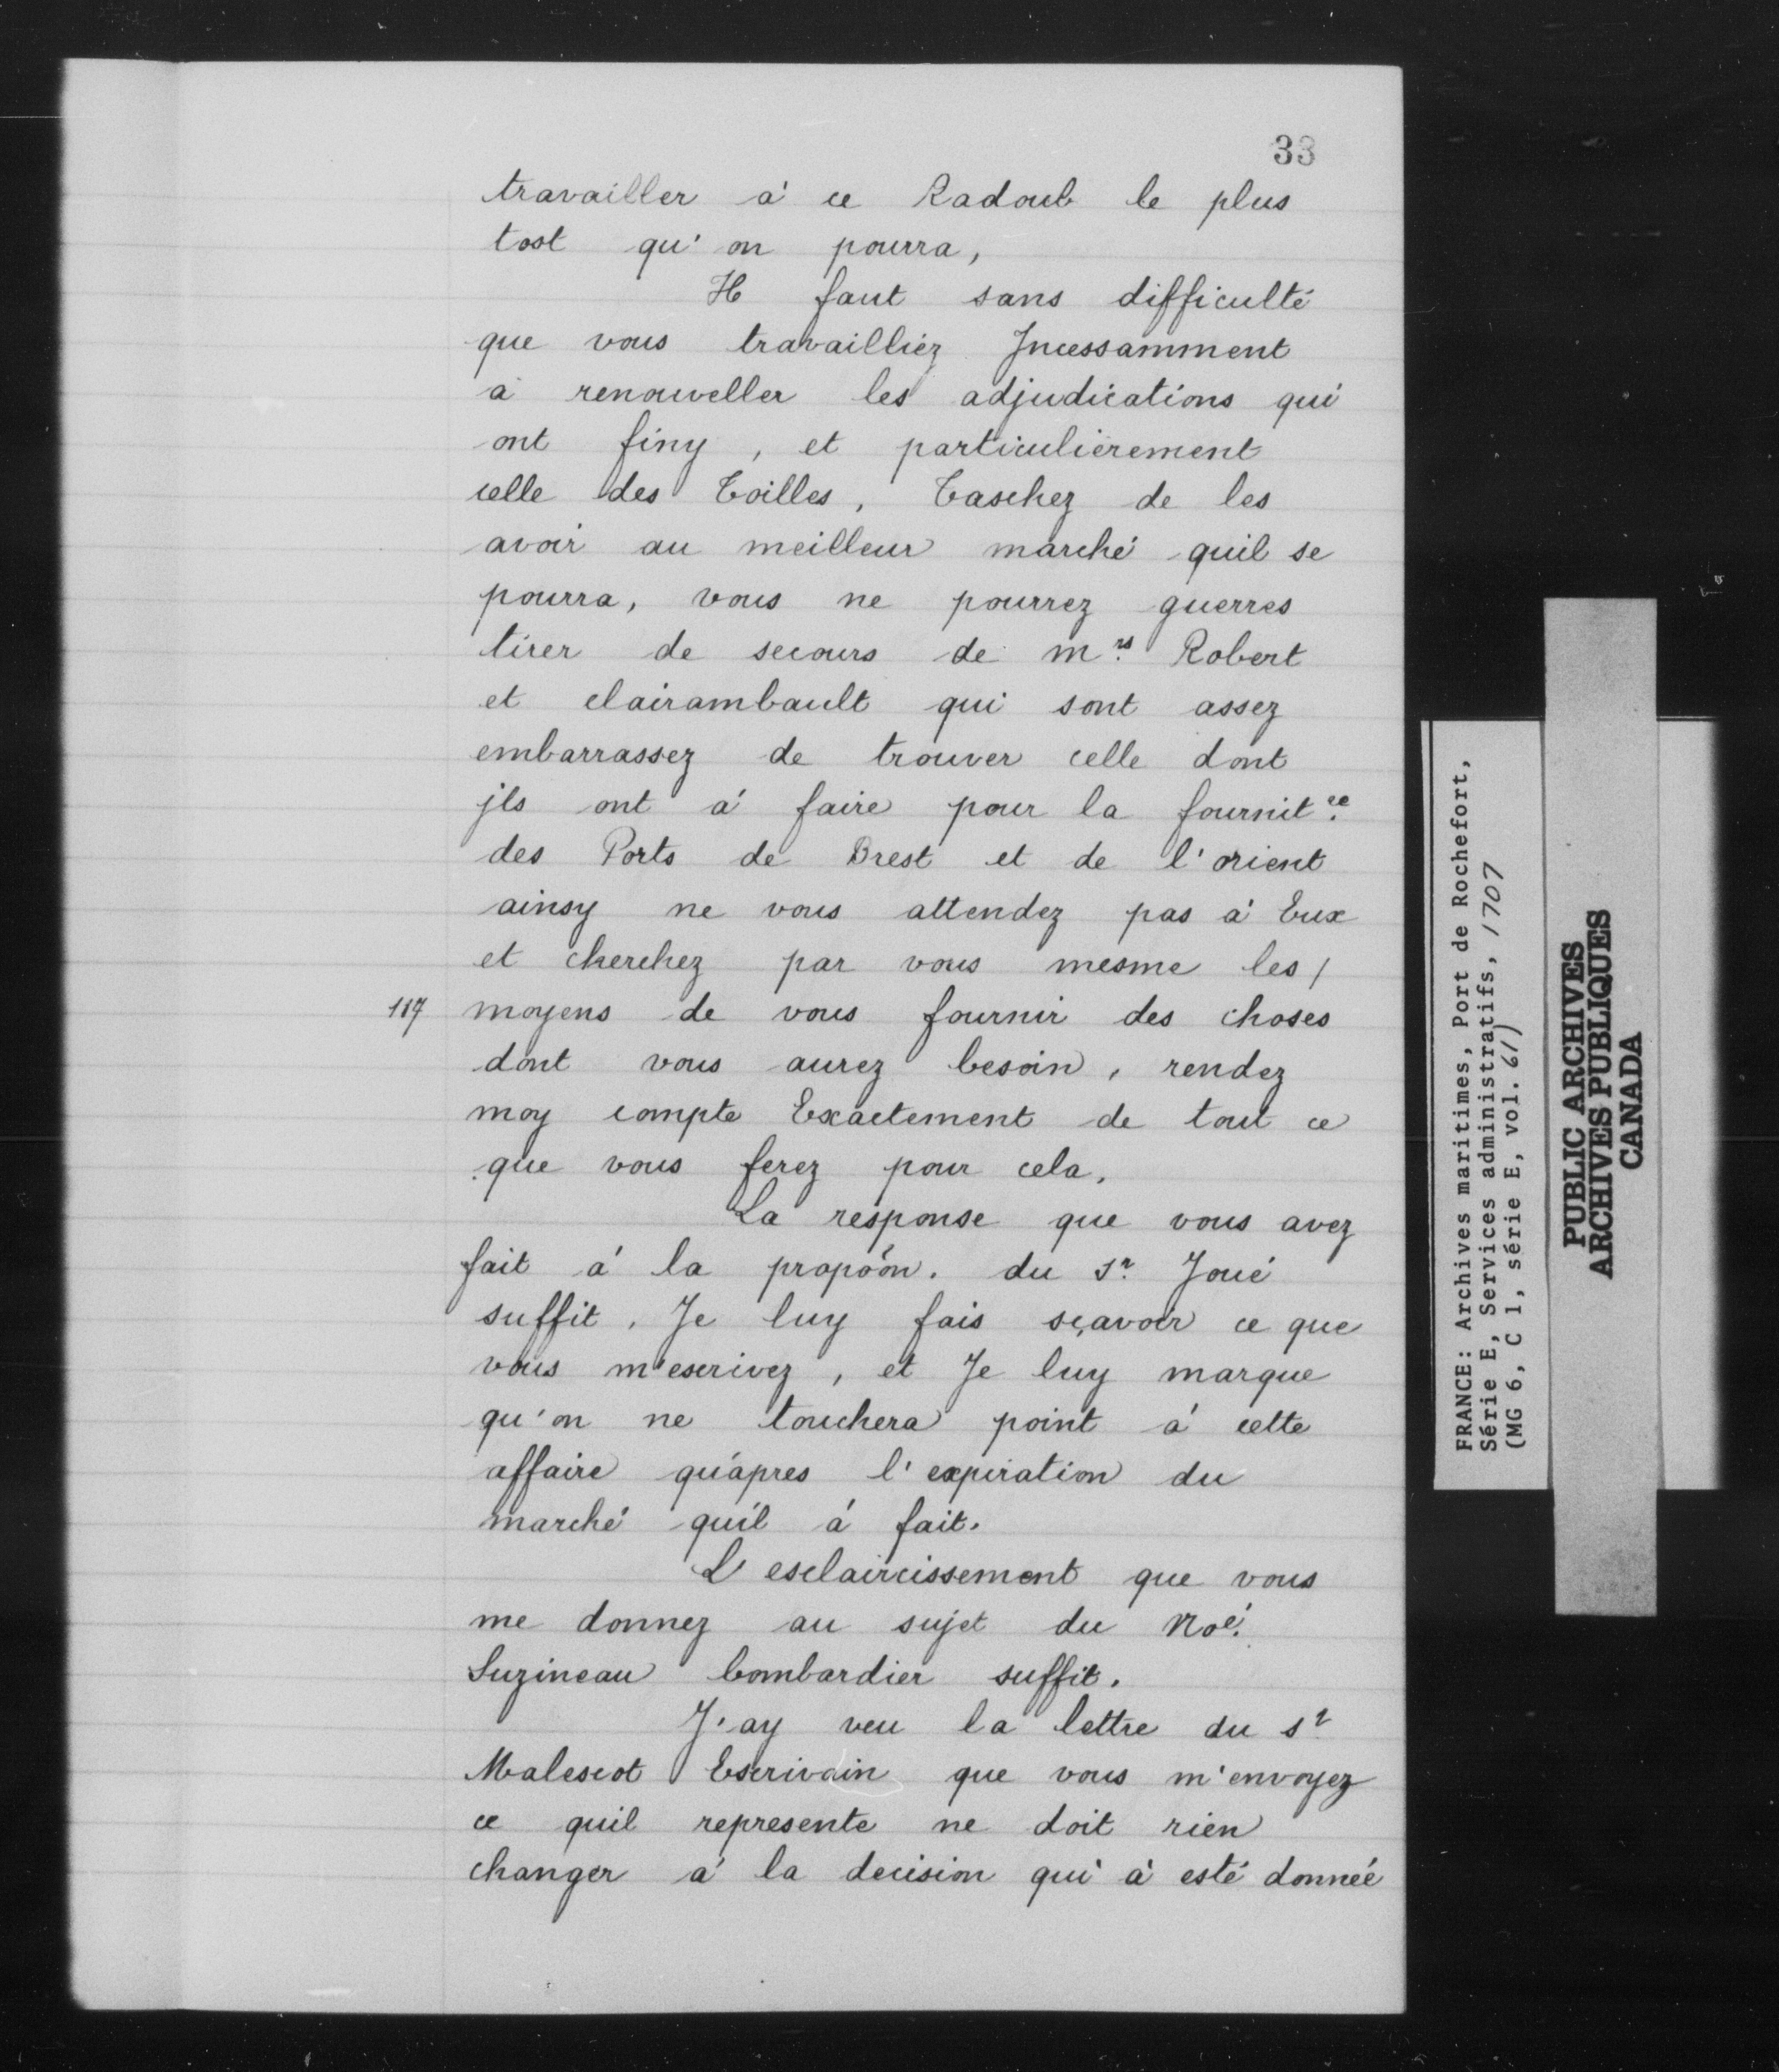 33
travailler à ce Radoub le plus
tost qu'on pourra,
Il faut sans difficulté
que vous travailliez Jncessamment
a renouveller les adjudications qui
ont finy, et particulièrement
celle des Toilles, Taschez de les
avoir au meilleur marché quil se
pourra, vous ne pourrez guerres
tirer de secours de mrs. Robert
et clairambault qui sont assez
embarrassez de trouver celle dont
jls ont à faire pour la fournit.re
des Ports de Brest et de l'orient
ainsy ne vous attendez pas à Eux
et cherchez par vous mesme les/
117 moyens de vous fournir des choses
dont vous aurez besoin, rendez
moy compte Exactement de tout ce
que vous ferez pour cela.
La response que vous avez
fait à la propoôn. du Sr. Joué
suffit. Je luy fais sçavoir ce que
vous m'escrivez, et Je luy marque
qu'on ne touchera point à cette
affaire qu'apres l'expiration du
marché qu'il à fait.
L'esclaircissement que vous
me donnez au sujet du Noé.
Suzineau bombardier suffit.
J'ay veu la lettre du Sr.
Malescot Escrivain que vous m'envoyez
ce quil represente ne doit rien
changer à la decision qui à esté donnée
FRANCE: Archives maritimes, Port de Rochefort,
Série E, Services administratifs, 1707
(MG 6, C 1, série E, vol. 61)
PUBLIC ARCHIVES
ARCHIVES PUBLIQUES
CANADA